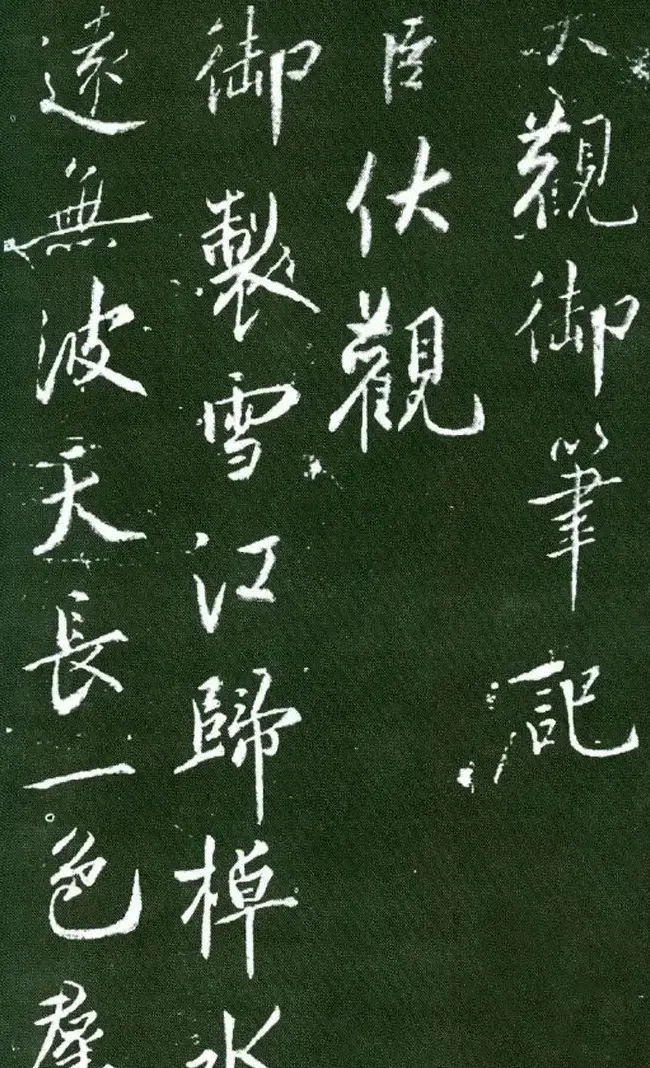 大觀御筆記
臣伏觀
御製雪江歸棹水
遠無波天長一色群